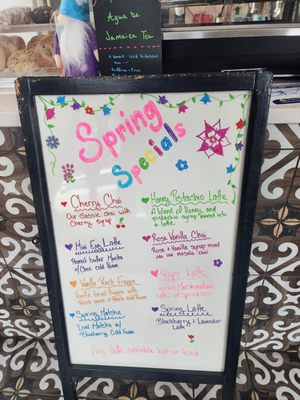 Agua De
Jamaica Tea
a sweet iced hibiscus
tea
Caffeine-Free
Spring
Specials
Cherry Chai
Our classic chai with
Cherry syrup
Honey Pistachio Latte
A blend of Honey and
pistachio syrup mixed into
a latte
Peanut butter Mocha
Cold Foam
Rose Vanilla Chai
Rose + Vanilla syrup mixed
into our masala chai
Vanilla Peach Frappe
Vanilla based Frappe with
Peach Cold Foam
Latte
Iced Marshmallow
Latte w/sprinkles
Spring Matcha
Iced Matcha w/
Blueberry Cold Foam
Spring Latte
Blackberry + Lavender
Latte
Any latte available hot or iced